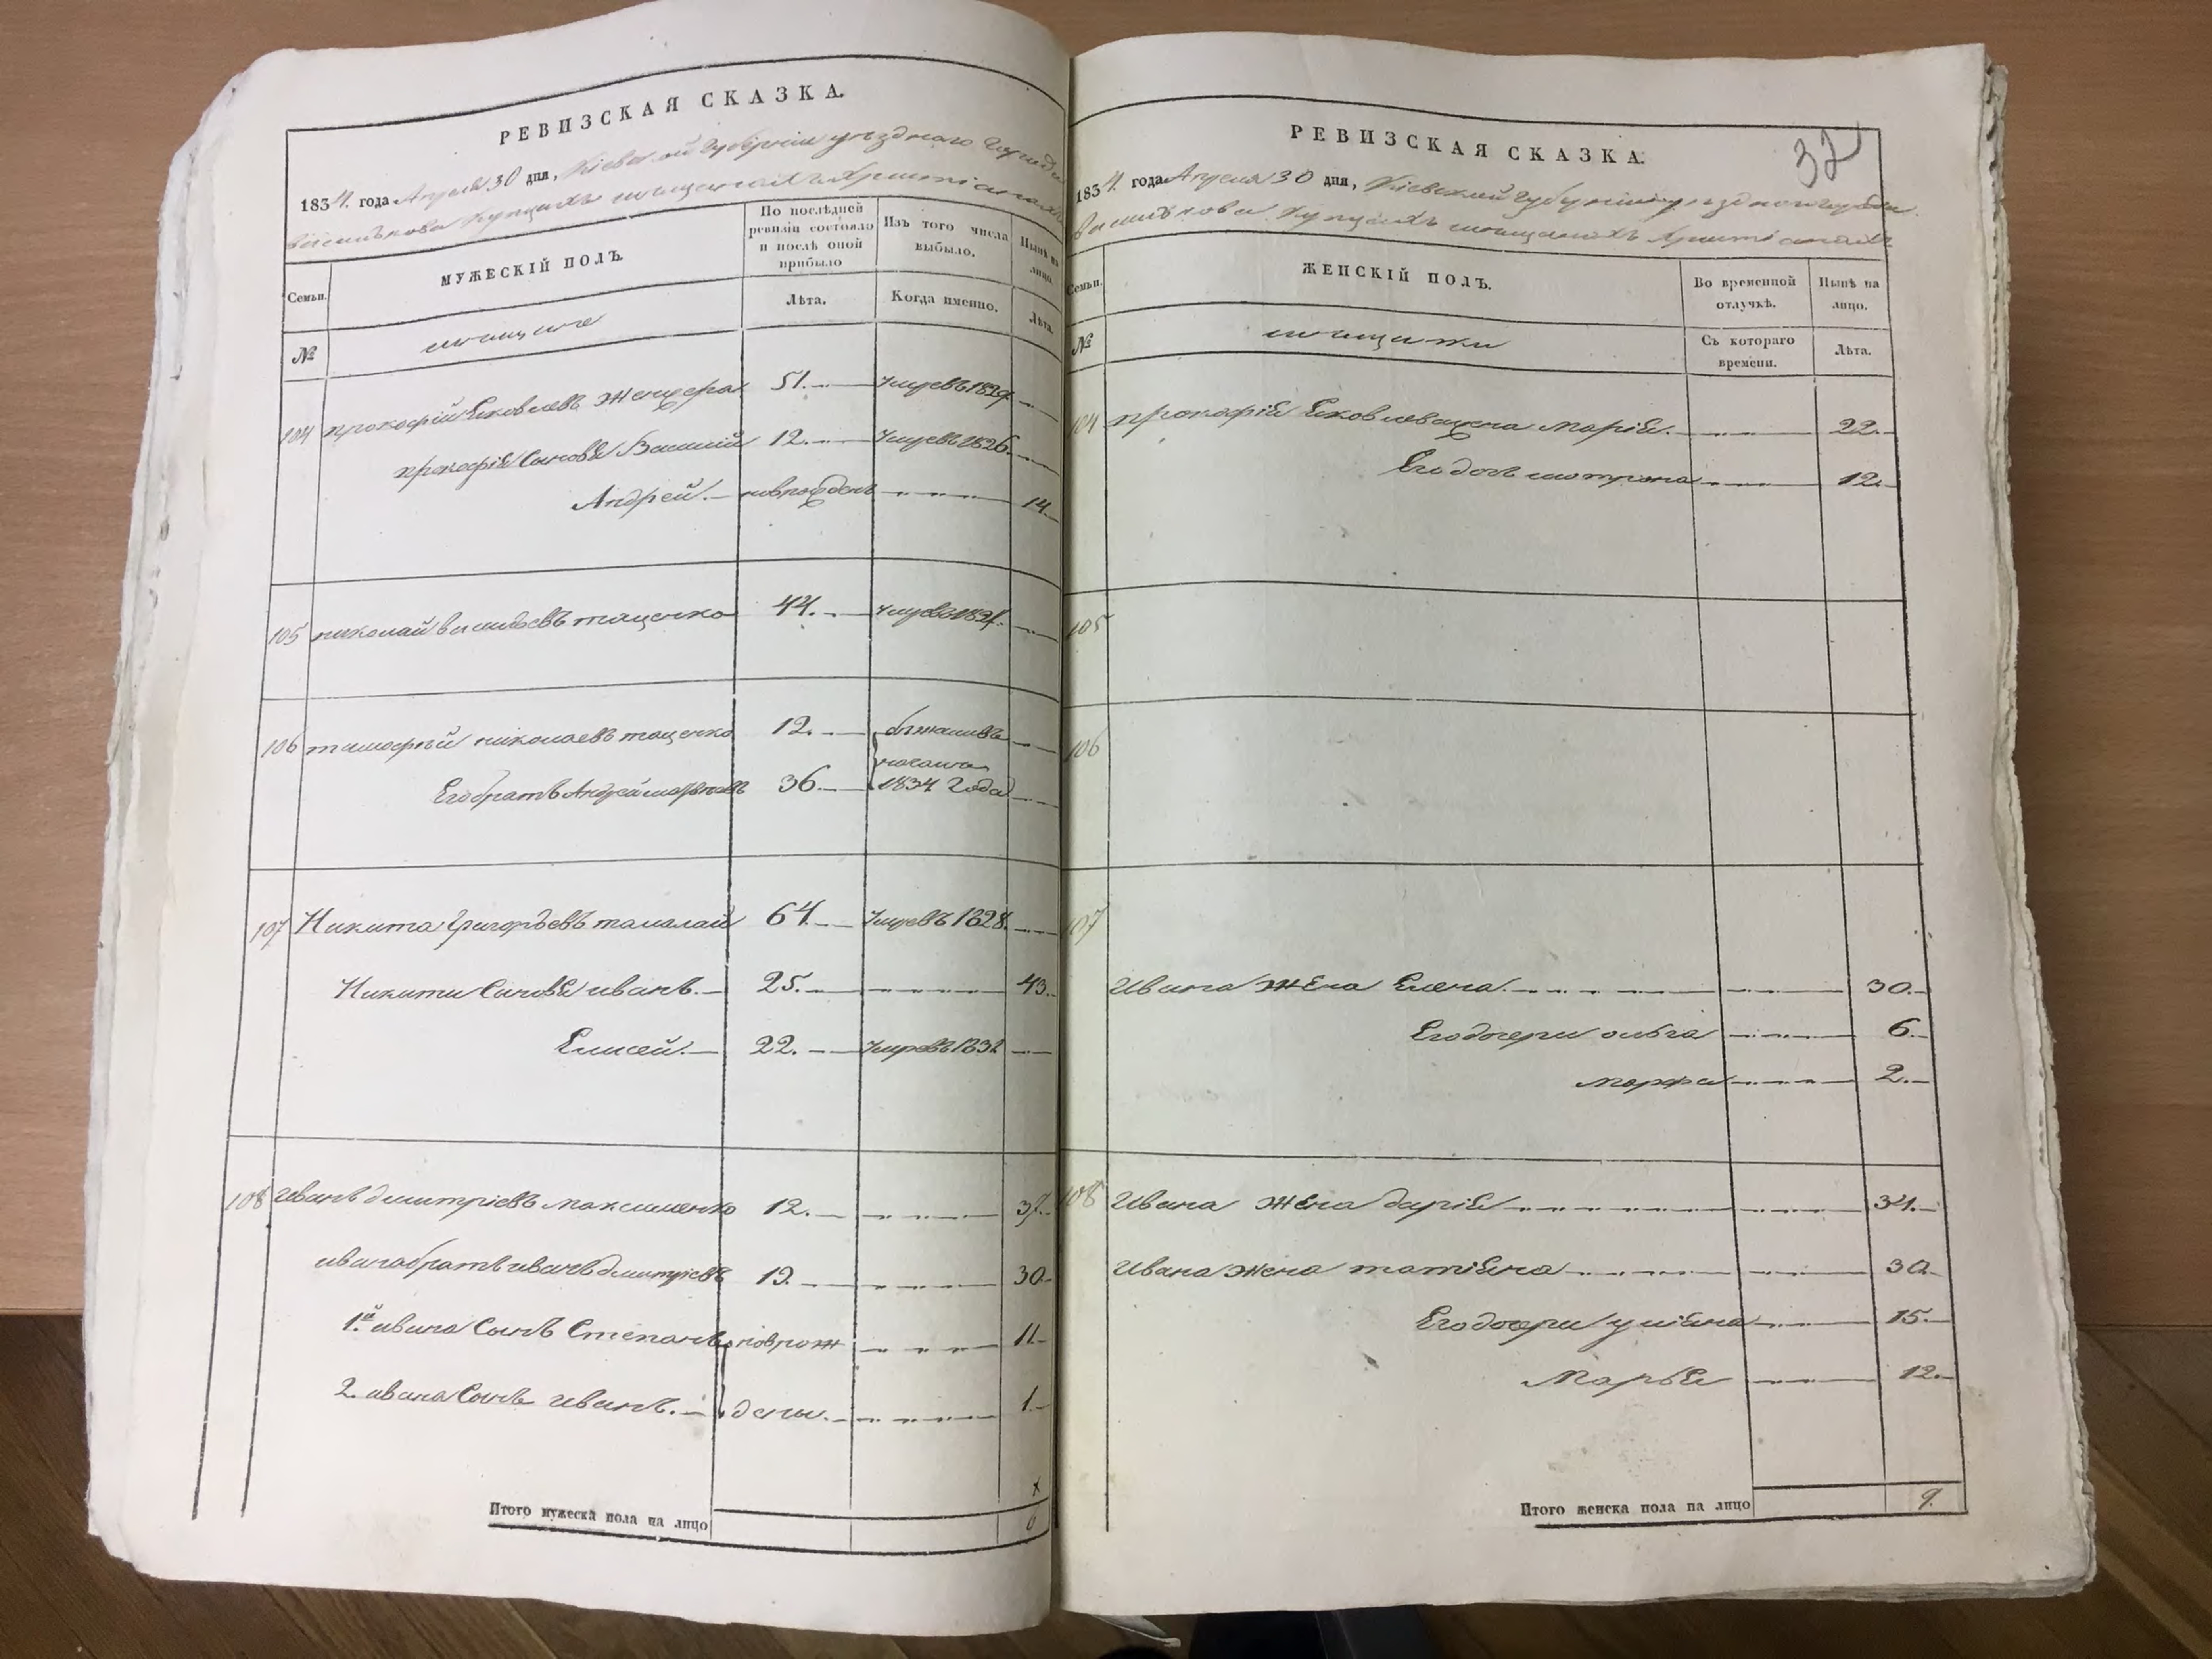 РЕВИЗСКАЯ СКАЗКА.
1834. года Апреля 30 дня, Кіевской Губерніи уезднаго Города
Василькова Купцахъ мещанахъ Христіанахъ
Семьи.
МУЖЕСКІЙ ПОЛЪ.
По последней ревизіи состояло и после оной прибыло
Изъ того числа выбыло.
Ныне на лицо.
Лѣта.
Когда именно.
Лѣта.
№
мещане
104 прокофій Яковлевъ 51. Умревъ 1829
прокофія Сыновья Василий 12. Умревъ 1826.
Андрей. новрожденъ 14
105 николай таценко 44. Умревъ
106 тимофей николаевъ таценко 12.
Его братъ Андрей 36. 1834 Года
107 Никита Григорьевъ тамалай 64. Умревъ 1828.
Никиты Сыновья иванъ. 25. 43.
Елисей. 22. Умревъ 1831
108 Иванъ дмитріевъ максименко 12.
ивана братъ иванъ дмитріевъ 13. 30
1.й ивана Сынъ Степанъ новрож 11
2. ивана Сынъ иванъ. дены. 1.
Итого мужеска пола на лицо 6
РЕВИЗСКАЯ СКАЗКА.
32
1834. года Апреля 30 дня, Кіевской Губерніи уезднаго города
Василькова Купцахъ мещанахъ Христіанахъ
Семьи.
ЖЕНСКІЙ ПОЛЪ.
Во временной отлучкѣ.
Нынѣ на лицо.
№
мещанки
Съ котораго времени.
Лѣта.
104 прокофія Яковлева Марія. 22.
Его дочь мотрона 12.
105
106
107
Ивана Жена Елена. 30.
Его дочери ольга 6.
марфа 2.
108 Ивана Жена дарія 34.
Ивана жена татіяна 30.
Его дочери уліяна 15.
Марья 12.
Итого женска пола на лицо 9.